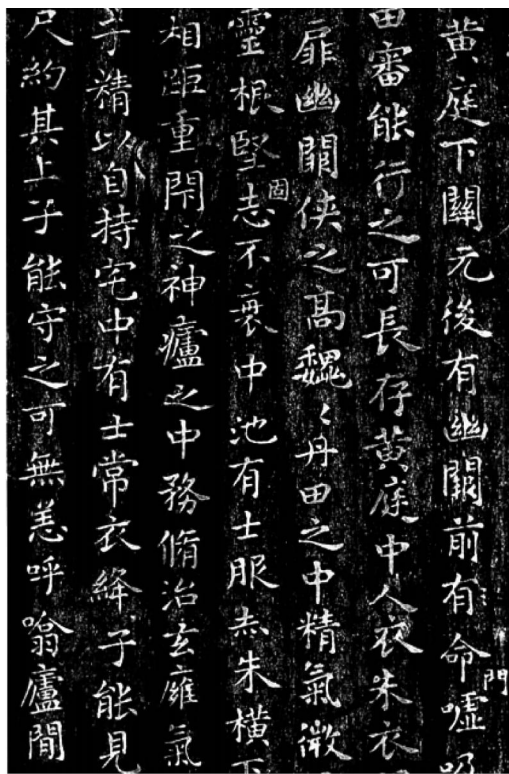 黃庭下關元後有幽闕前有命門噓吸
田審能行之可長存黃庭中人衣朱衣
扉幽闕俠之高巍〻丹田之中精氣微
靈根堅固志不衰中池有士服赤朱橫下
相距重閉之神廬之中務脩治玄廱氣
子精以自持宅中有士常衣絳子能見
尺約其上子能守之可無恙呼噏廬閒